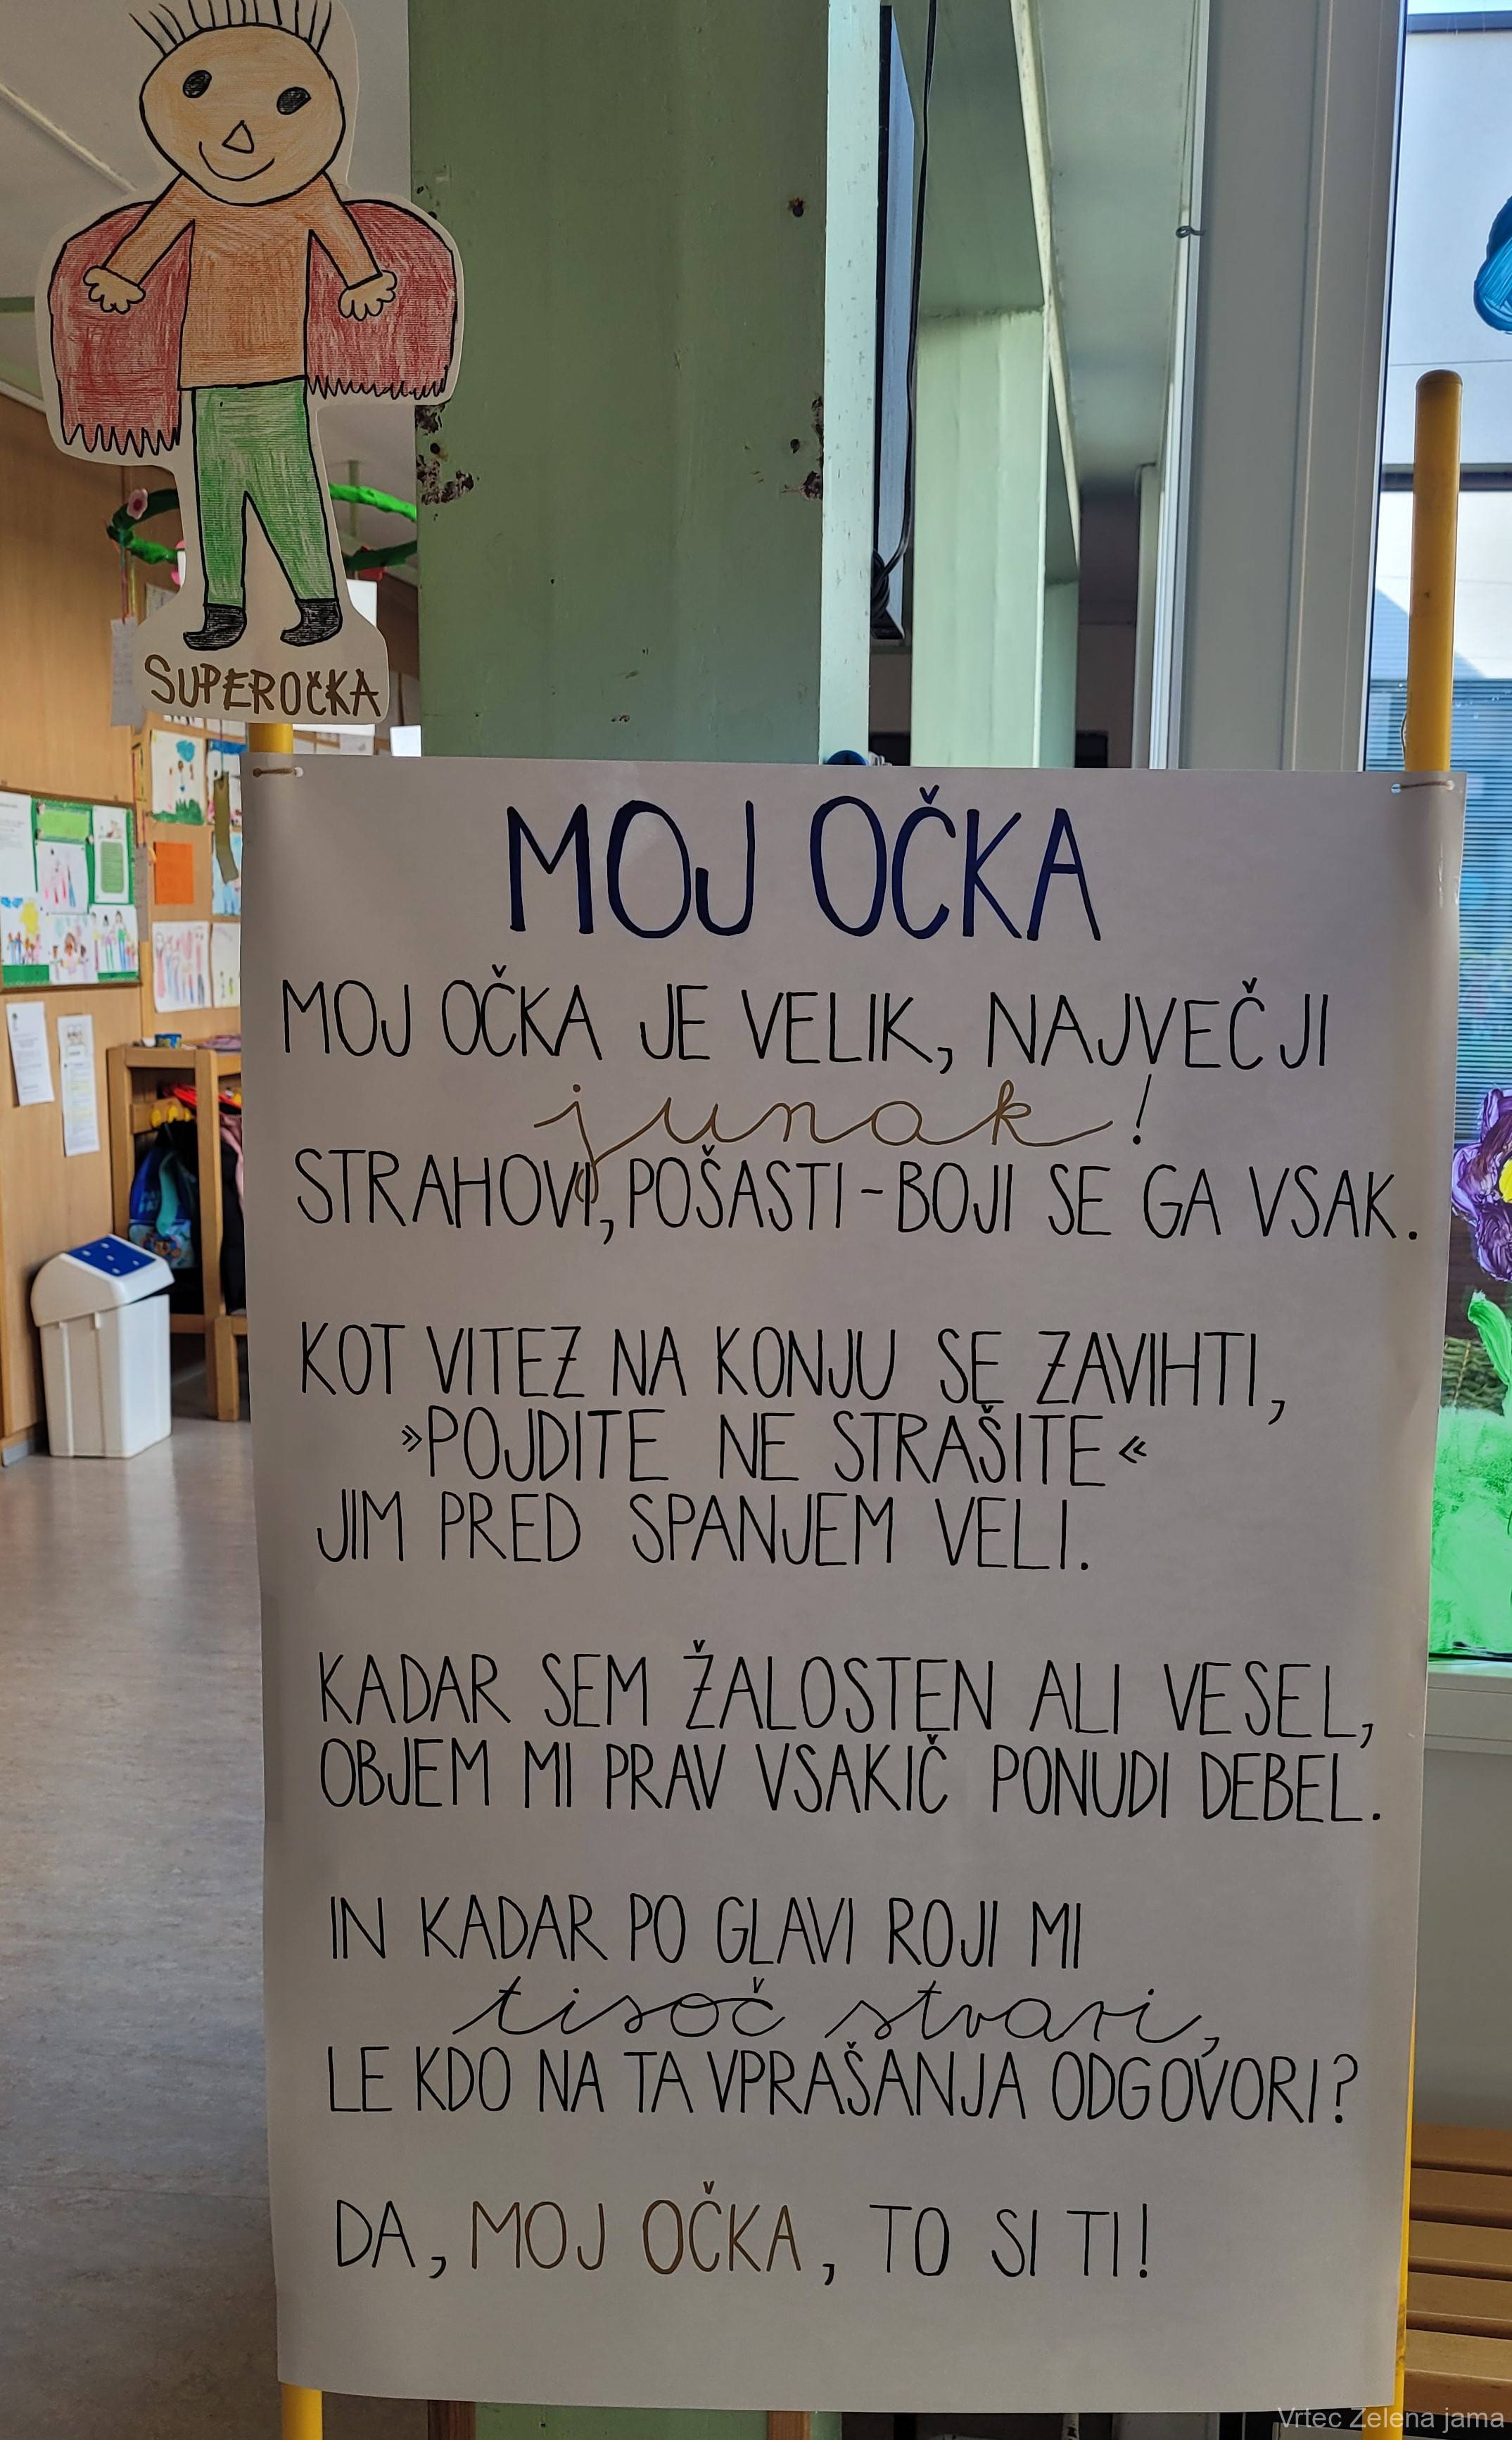 SUPEROČKA
MOJ OČKA
MOJ OČKA JE VELIK, NAJVEČJI
junak!
STRAHOVI, POŠASTI - BOJI SE GA VSAK.
KOT VITEZ NA KONJU SE ZAVIHTI,
»POJDITE NE STRAŠITE«
JIM PRED SPANJEM VELI.
KADAR SEM ŽALOSTEN ALI VESEL,
OBJEM MI PRAV VSAKIČ PONUDI DEBEL.
IN KADAR PO GLAVI ROJI MI
tisoč stvari,
LE KDO NA TA VPRAŠANJA ODGOVORI?
DA, MOJ OČKA, TO SI TI!
Vrtec Zelena jama